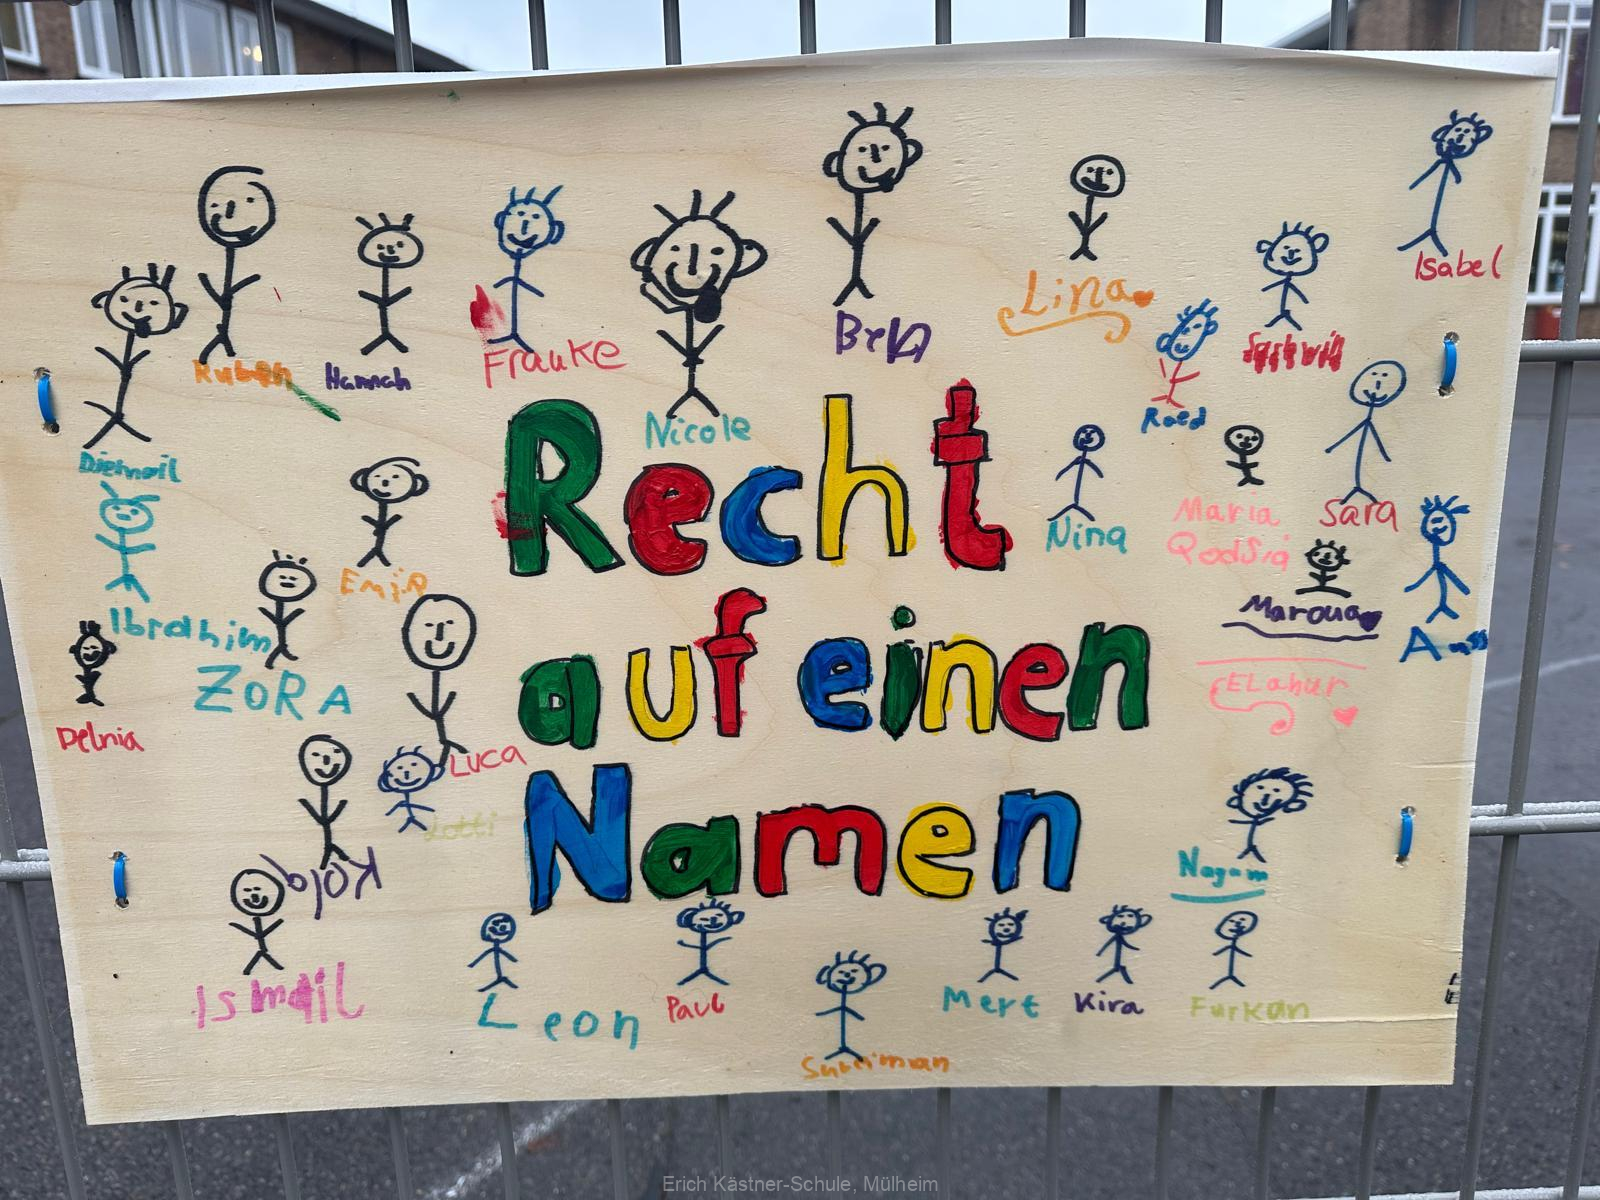 Isabel
Ruben
Hannah
Frauke
Nicole
Lina
Raed
Sara
Nina
Maria
Qodsia
Maroua
Emir
Ibrahim
ZORA
Delnia
Luca
Lotti
Recht
auf einen
Namen
Elanur
Nagam
Kola
Ismail
Leon
Paul
Suleiman
Mert
Kira
Furkan
Erich Kästner-Schule, Mülheim